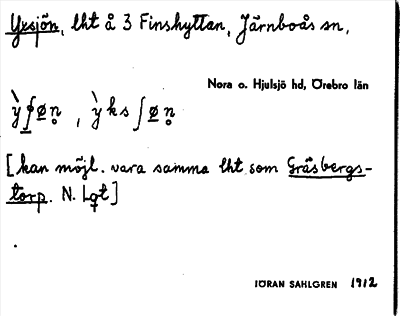 Yxsjön, lht å 3 Finshyttan, Järnboås sn,
Nora o. Hjulsjö hd, Örebro län
[kan möjl. vara samma lht som Gräsbergs-
torp. N. Lgt]
JÖRAN SAHLGREN 1912